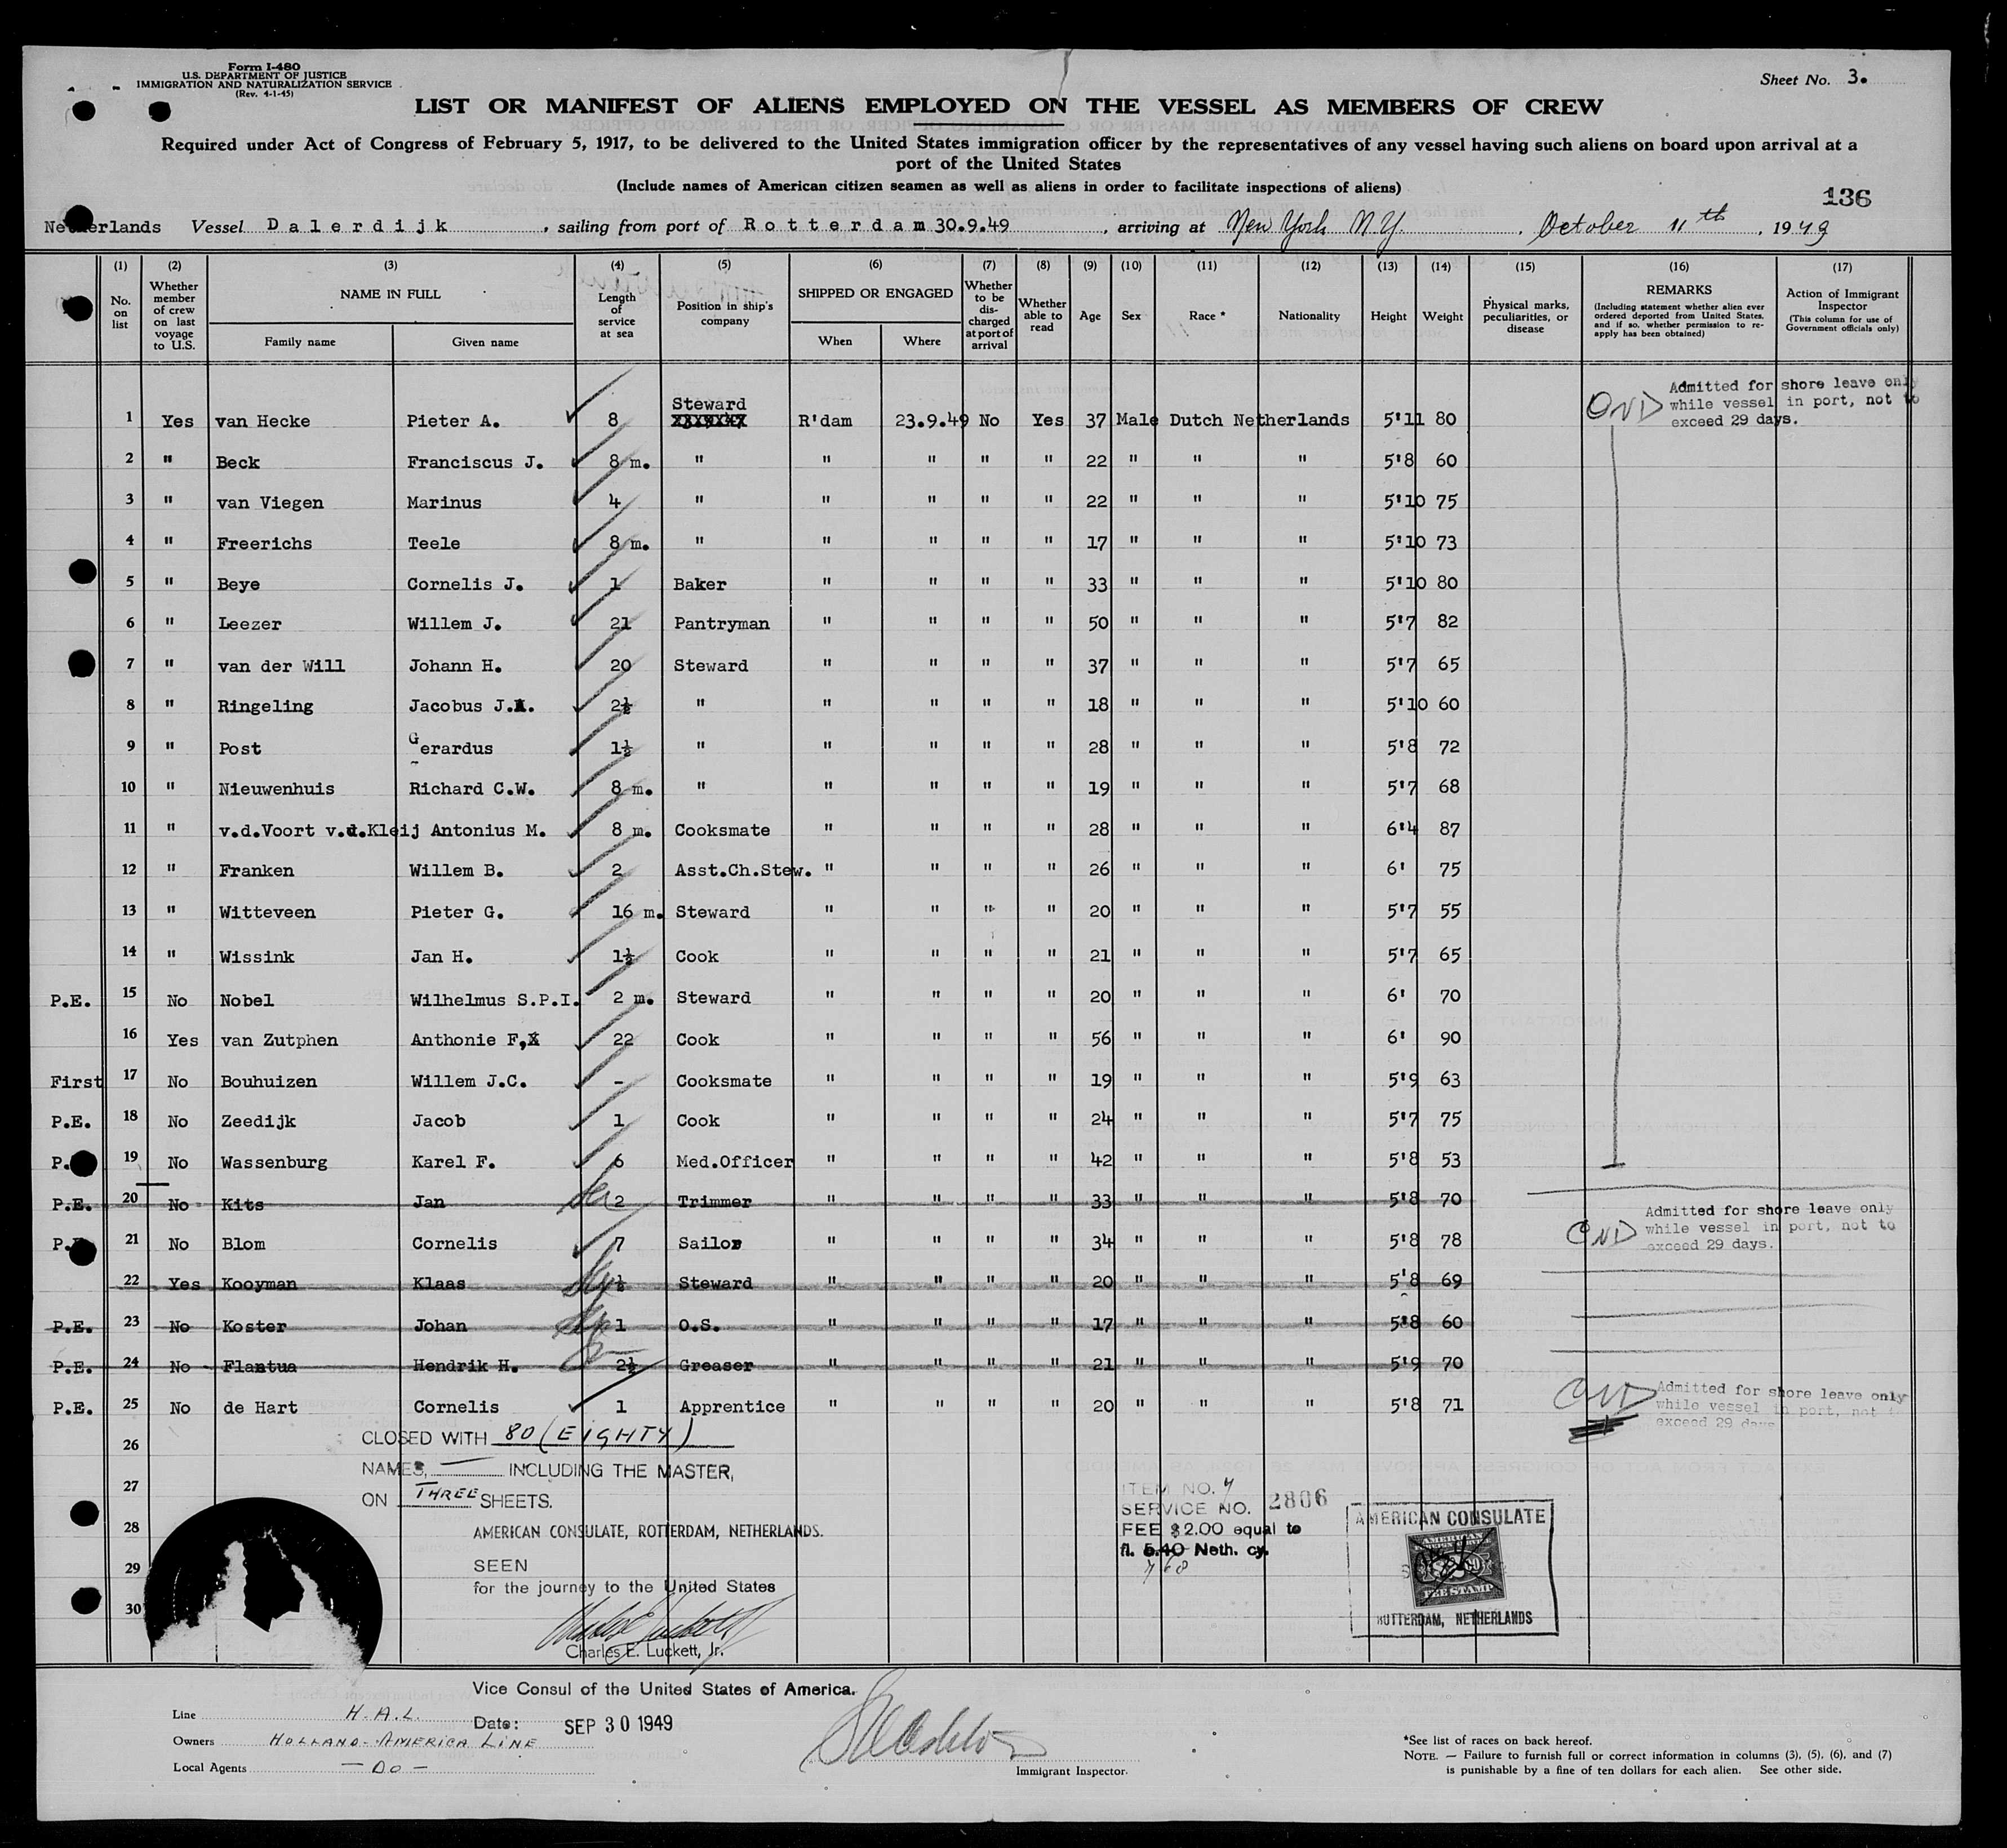 Form I-480
U.S. DEPARTMENT OF JUSTICE
IMMIGRATION AND NATURALIZATION SERVICE
(Rev. 4-1-45)
Sheet No. 3.
LIST OR MANIFEST OF ALIENS EMPLOYED ON THE VESSEL AS MEMBERS OF CREW
Required under Act of Congress of February 5, 1917, to be delivered to the United States immigration officer by the representatives of any vessel having such aliens on board upon arrival at a
port of the United States
(Include names of American citizen seamen as well as aliens in order to facilitate inspections of aliens)
136
Netherlands Vessel Dalerdijk, sailing from port of Rotterdam 30.9.49, arriving at New York N.Y., October 11th, 1949
(1) No. on list (2) Whether member of crew on last voyage to U.S. (3) NAME IN FULL Family name Given name (4) Length of service at sea (5) Position in ship's company (6) SHIPPED OR ENGAGED When Where (7) Whether to be discharged at port of arrival (8) Whether able to read (9) Age (10) Sex (11) Race * (12) Nationality (13) Height (14) Weight (15) Physical marks, peculiarities, or disease (16) REMARKS (Including statement whether alien ever ordered deported from United States, and if so, whether permission to re-apply has been obtained) (17) Action of Immigrant Inspector (This column for use of Government officials only)
1 Yes van Hecke Pieter A. 8 Steward R'dam 23.9.49 No Yes 37 Male Dutch Netherlands 5'11 80 Admitted for shore leave only while vessel in port, not to exceed 29 days.
2 " Beck Franciscus J. 8 m. " " " " " 22 " " " 5'8 60
3 " van Viegen Marinus 4 " " " " " 22 " " " 5'10 75
4 " Freerichs Teele 8 m. " " " " " 17 " " " 5'10 73
5 " Beye Cornelis J. 1 Baker " " " " 33 " " " 5'10 80
6 " Leezer Willem J. 21 Pantryman " " " " 50 " " " 5'7 82
7 " van der Will Johann H. 20 Steward " " " " 37 " " " 5'7 65
8 " Ringeling Jacobus J.A. 2½ " " " " " 18 " " " 5'10 60
9 " Post Gerardus 1½ " " " " " 28 " " " 5'8 72
10 " Nieuwenhuis Richard C.W. 8 m. " " " " " 19 " " " 5'7 68
11 " v.d.Voort v.d.Kleij Antonius M. 8 m. Cooksmate " " " " 28 " " " 6'4 87
12 " Franken Willem B. 2 Asst.Ch.Stew. " " " " 26 " " " 6' 75
13 " Witteveen Pieter G. 16 m. Steward " " " " 20 " " " 5'7 55
14 " Wissink Jan H. 1½ Cook " " " " 21 " " " 5'7 65
P.E. 15 No Nobel Wilhelmus S.P.I. 2 m. Steward " " " " 20 " " " 6' 70
16 Yes van Zutphen Anthonie F. 22 Cook " " " " 56 " " " 6' 90
First 17 No Bouhuizen Willem J.C. - Cooksmate " " " " 19 " " " 5'9 63
P.E. 18 No Zeedijk Jacob 1 Cook " " " " 24 " " " 5'7 75
P. 19 No Wassenburg Karel F. 6 Med.Officer " " " " 42 " " " 5'8 53
P.E. 20 No Kits Jan 2 Trimmer " " " " 33 " " " 5'8 70
P. 21 No Blom Cornelis 7 Sailor " " " " 34 " " " 5'8 78 Admitted for shore leave only while vessel in port, not to exceed 29 days.
22 Yes Kooyman Klaas ½ Steward " " " " 20 " " " 5'8 69
P.E. 23 No Koster Johan 1 O.S. " " " " 17 " " " 5'8 60
P.E. 24 No Flantua Hendrik H. 2½ Greaser " " " " 21 " " " 5'9 70
P.E. 25 No de Hart Cornelis 1 Apprentice " " " " 20 " " " 5'8 71 Admitted for shore leave only while vessel in port, not to exceed 29 days
26
27
28
29
30
CLOSED WITH 80 (EIGHTY)
NAMES, — INCLUDING THE MASTER,
ON THREE SHEETS.
AMERICAN CONSULATE, ROTTERDAM, NETHERLANDS.
SEEN
for the journey to the United States
Charles E. Luckett, Jr.
Vice Consul of the United States of America.
Date: SEP 30 1949
ITEM NO. 7
SERVICE NO. 2806
FEE $2.00 equal to
fl. 5.40 Neth. cy.
7 60
AMERICAN CONSULATE
FEE STAMP
ROTTERDAM, NETHERLANDS
Line H.A.L.
Owners HOLLAND-AMERICA LINE
Local Agents — DO —
Immigrant Inspector.
*See list of races on back hereof.
NOTE. — Failure to furnish full or correct information in columns (3), (5), (6), and (7)
is punishable by a fine of ten dollars for each alien. See other side.